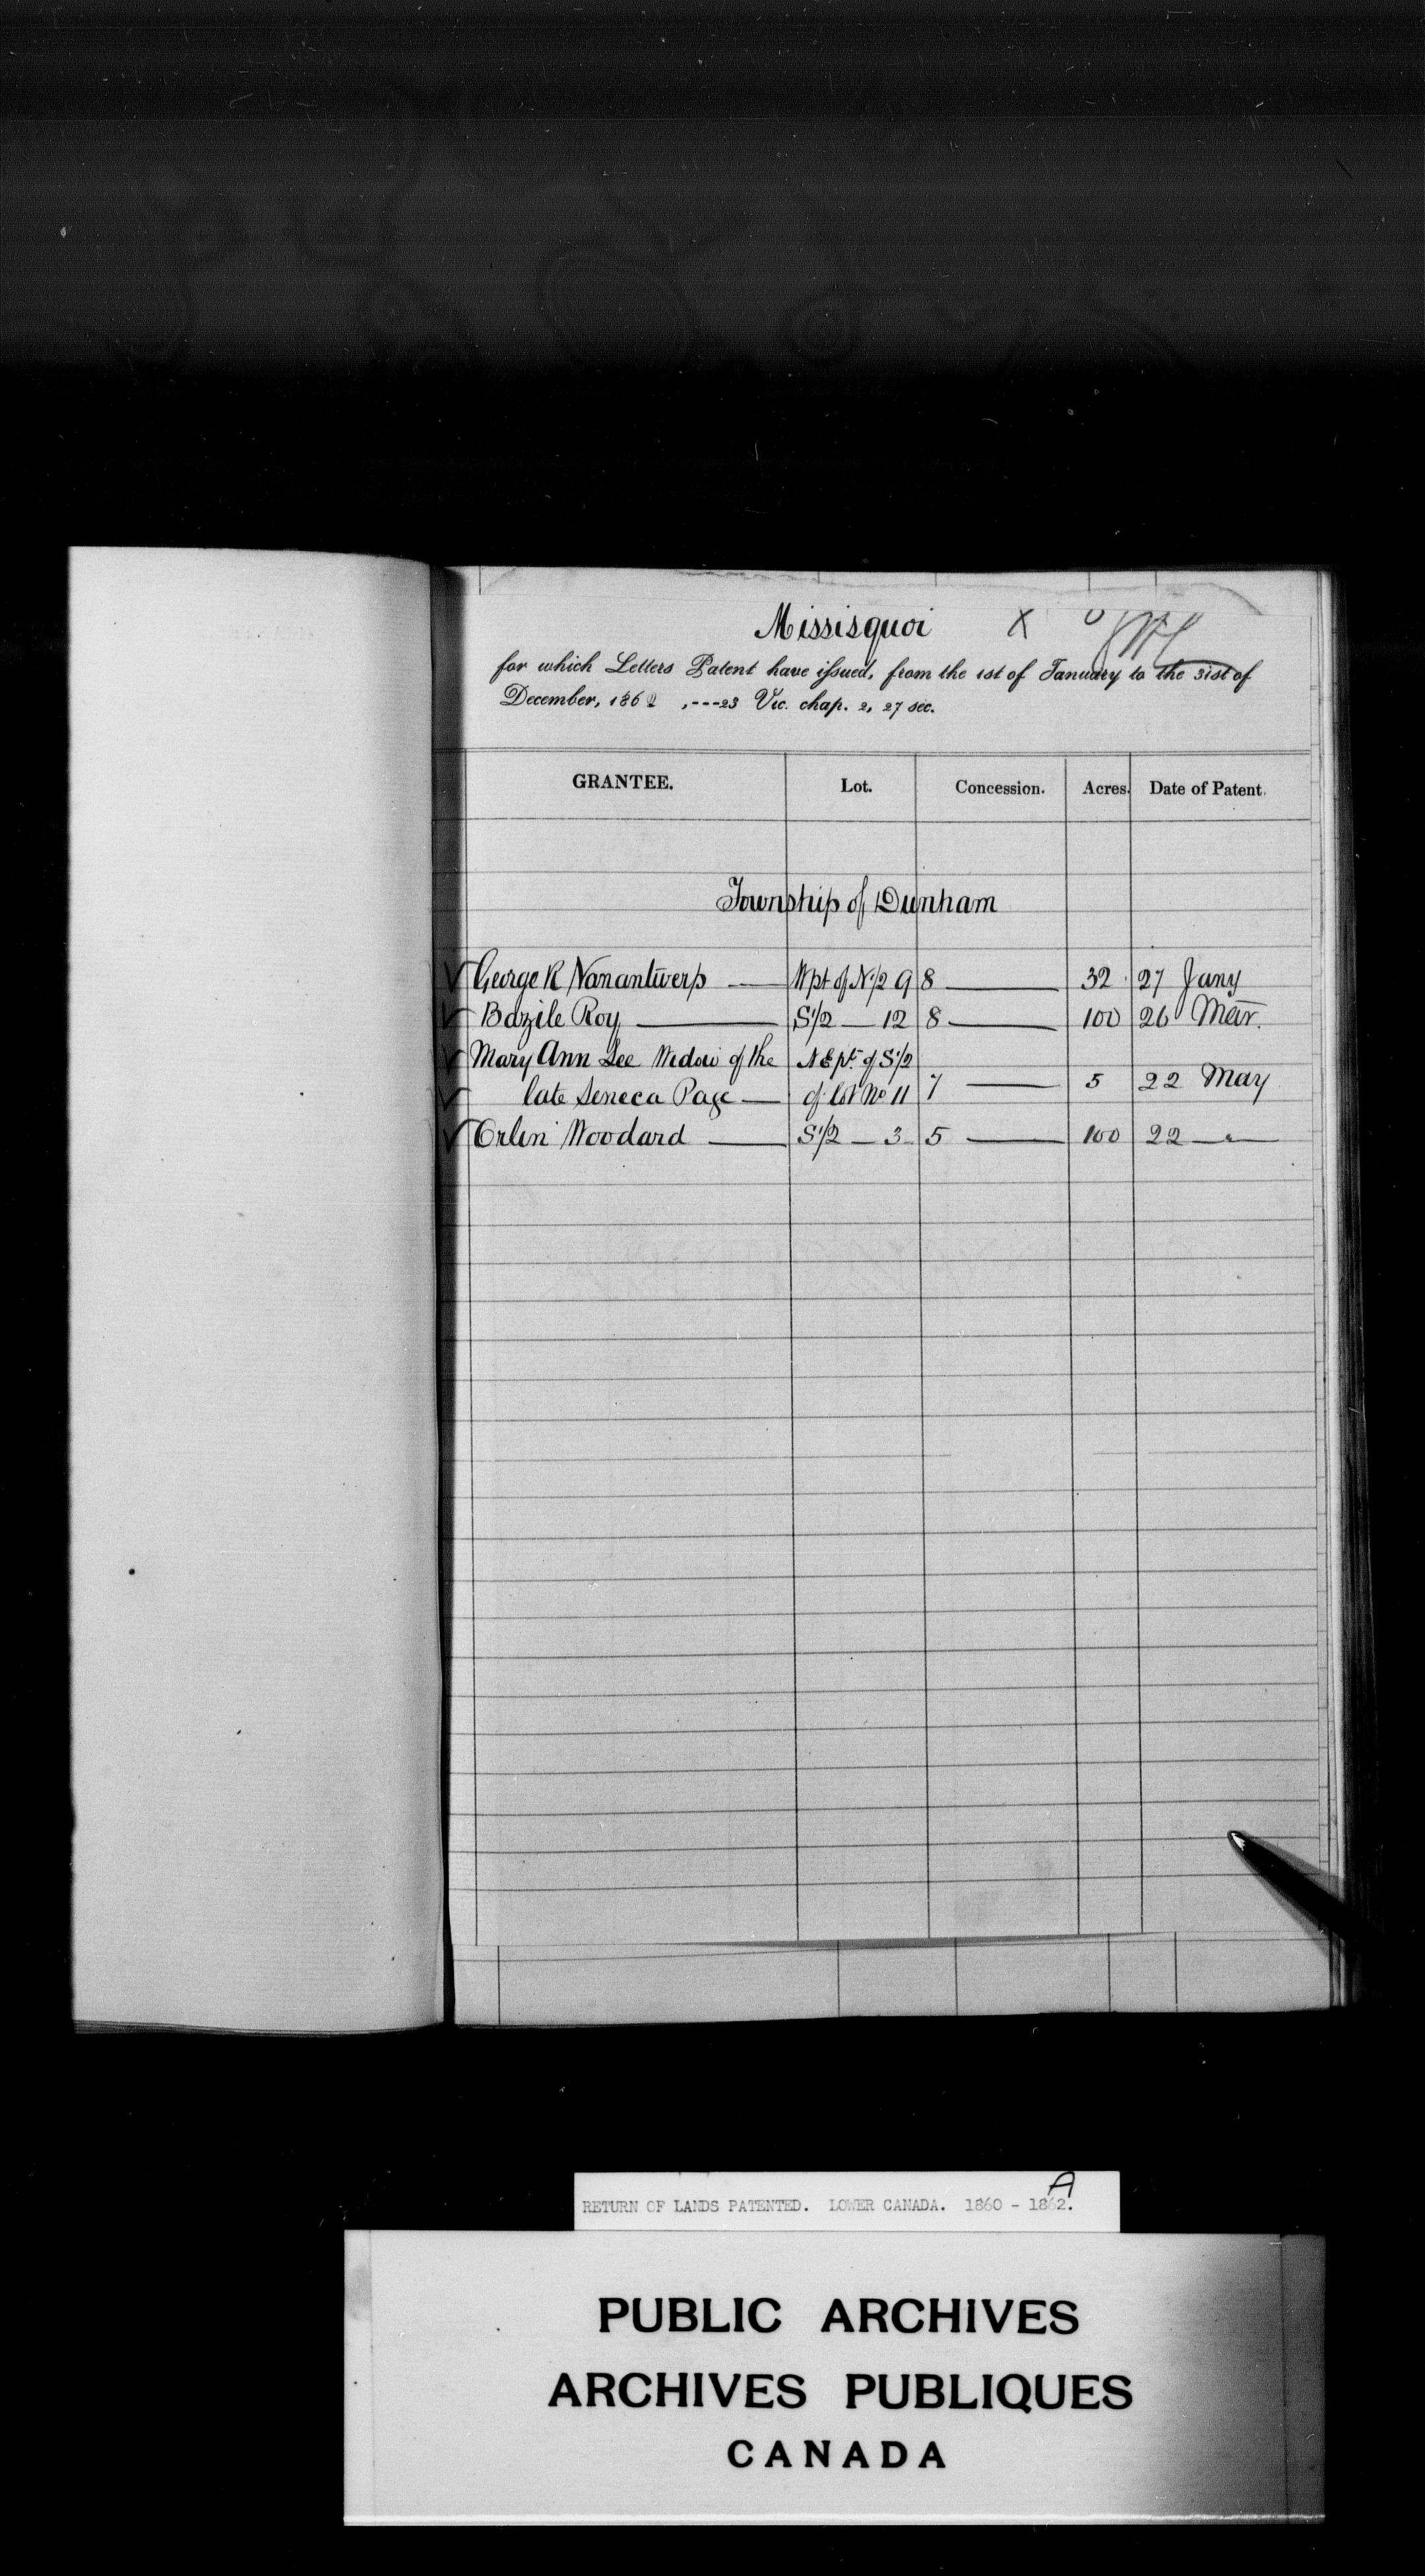 Missisquoi X
for which Letters Patent have issued, from the 1st of January to the 31st of
December, 1862 ,---23 Vic. chap. 2, 27 sec.
GRANTEE. Lot. Concession. Acres. Date of Patent.
Township of Dunham
George R Vanantwerp — W pt of N 1/2 9 8 — 32 27 Jany
Bazile Roy — S 1/2 — 12 8 — 100 26 Mar.
Mary Ann Lee Widow of the N E pt of S 1/2
late Seneca Page — of lot No 11 7 — 5 22 May
Orlin Woodard — S 1/2 — 3 5 — 100 22 — "
RETURN OF LANDS PATENTED. LOWER CANADA. 1860 - 1862.
A
PUBLIC ARCHIVES
ARCHIVES PUBLIQUES
CANADA